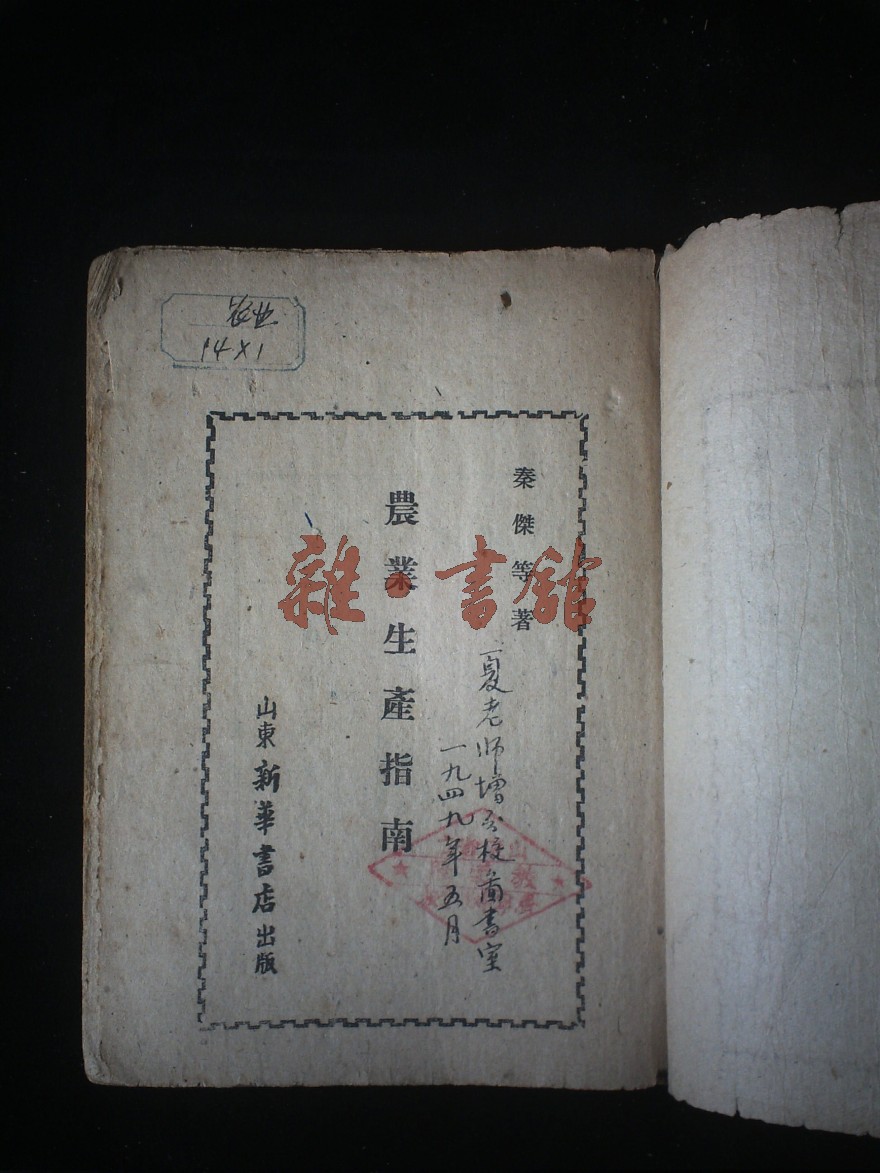 秦傑等著
夏老師增弖校啚書室
一九四九年五月
農業生產指南
山東新華書店出版
14X1
雜·書館